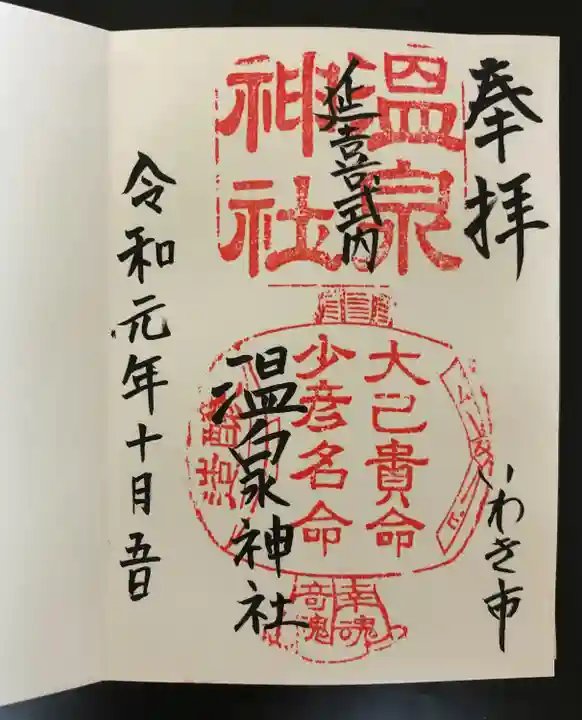 奉拝
いわき市
温泉
神社
延喜式内
大己貴命
少彦名命
温泉神社
幸魂
奇魂
令和元年十月五日